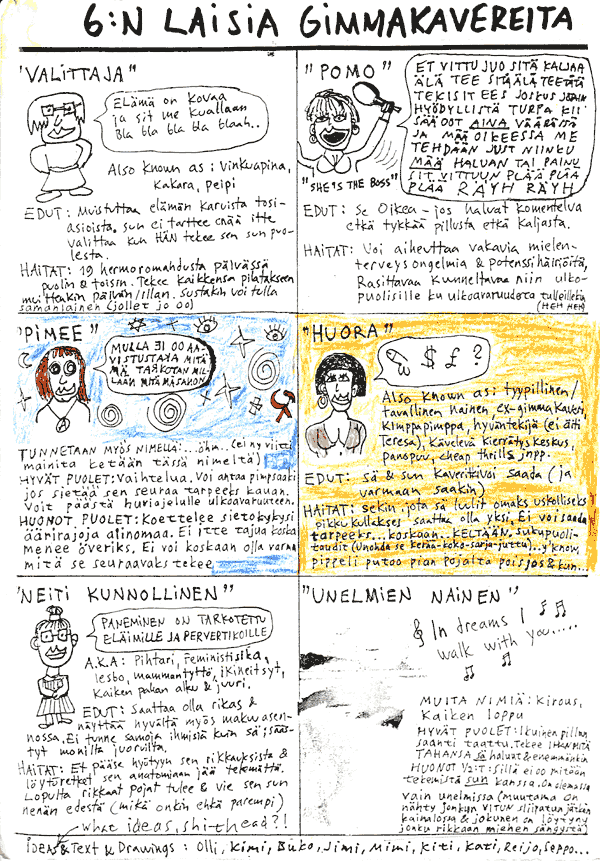 6:N LAISIA GIMMAKAVEREITA
"VALITTAJA"
ELÄMÄ ON KOVAA
ja sit me kuallaan
Bla bla bla bla blaah..
Also known as: vinkuapina,
Kakara, peipi
EDUT: Muistuttaa elämän karuista tosi-
asioista, sun ei tarttee enää itte
valittaa kun HÄN tekee sen sun puo-
lesta.
HAITAT: 19 hermoromahdusta päivässä
puolin & toisin. Tekee kaikkensa pilatakseen
muittakin päivän/illan. Sustakin voi tulla
samanlainen (jollet jo oo)
"POMO"
ET VITTU JUO SITÄ KALJAA
ÄLÄ TEE SITÄ ÄLÄ TEE TÄTÄ
TEKISIT EES JOSKUS JOTAIN
HYÖDYLLISTÄ TURPA KII
SÄÄ OOT AINA VÄÄRÄSSÄ
JA MÄÄ OIKEESSA ME
TEHDÄÄN JUST NIINKU
MÄÄ HALUAN TAI PAINU
SIT VITTUUN PLÄÄ PLÄÄ
PLÄÄ RÄYH RÄYH
"SHE'S THE BOSS"
EDUT: Se Oikea - jos haluat komentelua
etkä tykkää pillusta etkä kaljasta.
HAITAT: Voi aiheuttaa vakavia mielen-
terveys ongelmia & potenssi häiriöitä,
Rasittavaa kunneltavaa niin ulko-
puolisille ku ulkoavaruudota tulleillekin
(HEH HEH)
"PIMEE"
MULLA EI OO AA-
VISTUSTAKA MITÄ
MÄ TARKOTAN MIL-
LÄÄN MITÄ MÄ SANON
TUNNETAAN MYÖS NIMELLÄ:...öhm.. (ei ny viiti
mainita ketään tässä nimeltä)
HYVÄT PUOLET: Vaihtelua. Voi antaa pimpsaaki
jos sietää sen seuraa tarpeeks kauan.
Voit päästä huviajelulle ulkoavaruuteen.
HUONOT PUOLET: Koettelee sietokykysi
äärirajoja alinomaa. Ei itte tajua koska
menee överiks. Ei voi koskaan olla varma
mitä se seuraavaks tekee.
"HUORA"
$ £ ?
Also known as: tyypillinen/
tavallinen nainen ex-gimmakaveri,
Kimppapimppa, hyväntekijä (ei äiti
Teresa), Kävelevä kierrätyskeskus,
panopuu, cheap thrills jnpp.
EDUT: sä & sun kaveritki voi saada (ja
varmaan saakin)
HAITAT: Sekin jota sä luulit omaks uskolliseks
pikku kullakses saattaa olla yksi. Ei voi saada
tarpeeks... koskaan.. KELTÄÄN. Sukupuoli-
taudit (Unohda se kerää-koko-sarja-juttu)... y'know,
pippeli putoo pian pojalta pois jos & kun...
"NEITI KUNNOLLINEN"
PANEMINEN ON TARKOTETTU
ELÄIMILLE JA PERVERTIKOILLE
A.K.A: Pihtari, Feministisika,
lesbo, mammantyttö, ikineitsyt,
Kaiken pahan alku & juuri.
EDUT: Saattaa olla rikas &
näyttää hyvältä myös makuuasen-
nossa. Ei tunne samoja ihmisiä kuin sä, säästyt
monilta juoruilta.
HAITAT: Et pääse hyötyyn sen rikkauksista &
löytöretket sen anatomiaan jää tekemättä.
Lopulta rikkaat pojat tulee & vie sen sun
nenän edestä (mikä onkin ehkä parempi)
what ideas, shithead?!
"UNELMIEN NAINEN"
In dreams I
walk with you.....
MUITA NIMIÄ: Kirous,
Kaiken loppu
HYVÄT PUOLET: Ikuinen pillun
saanti taattu. Tekee IHAN MITÄ
TAHANSA sä haluat & enemmänkin
HUONOT 1/2:T: Sillä ei oo mitään
tekemistä sun kanssa. On olemassa
vain unelmissa (muutama on
nähty jonkun VITUN sliipatun jätkän
kainalossa & jokunen on löytyny
jonku rikkaan miehen sängystä)
IDEAS & Text & Drawings: Olli, Kimi, Büko, Jimi, Mimi, Kiti, Kati, Reijo, Seppo...